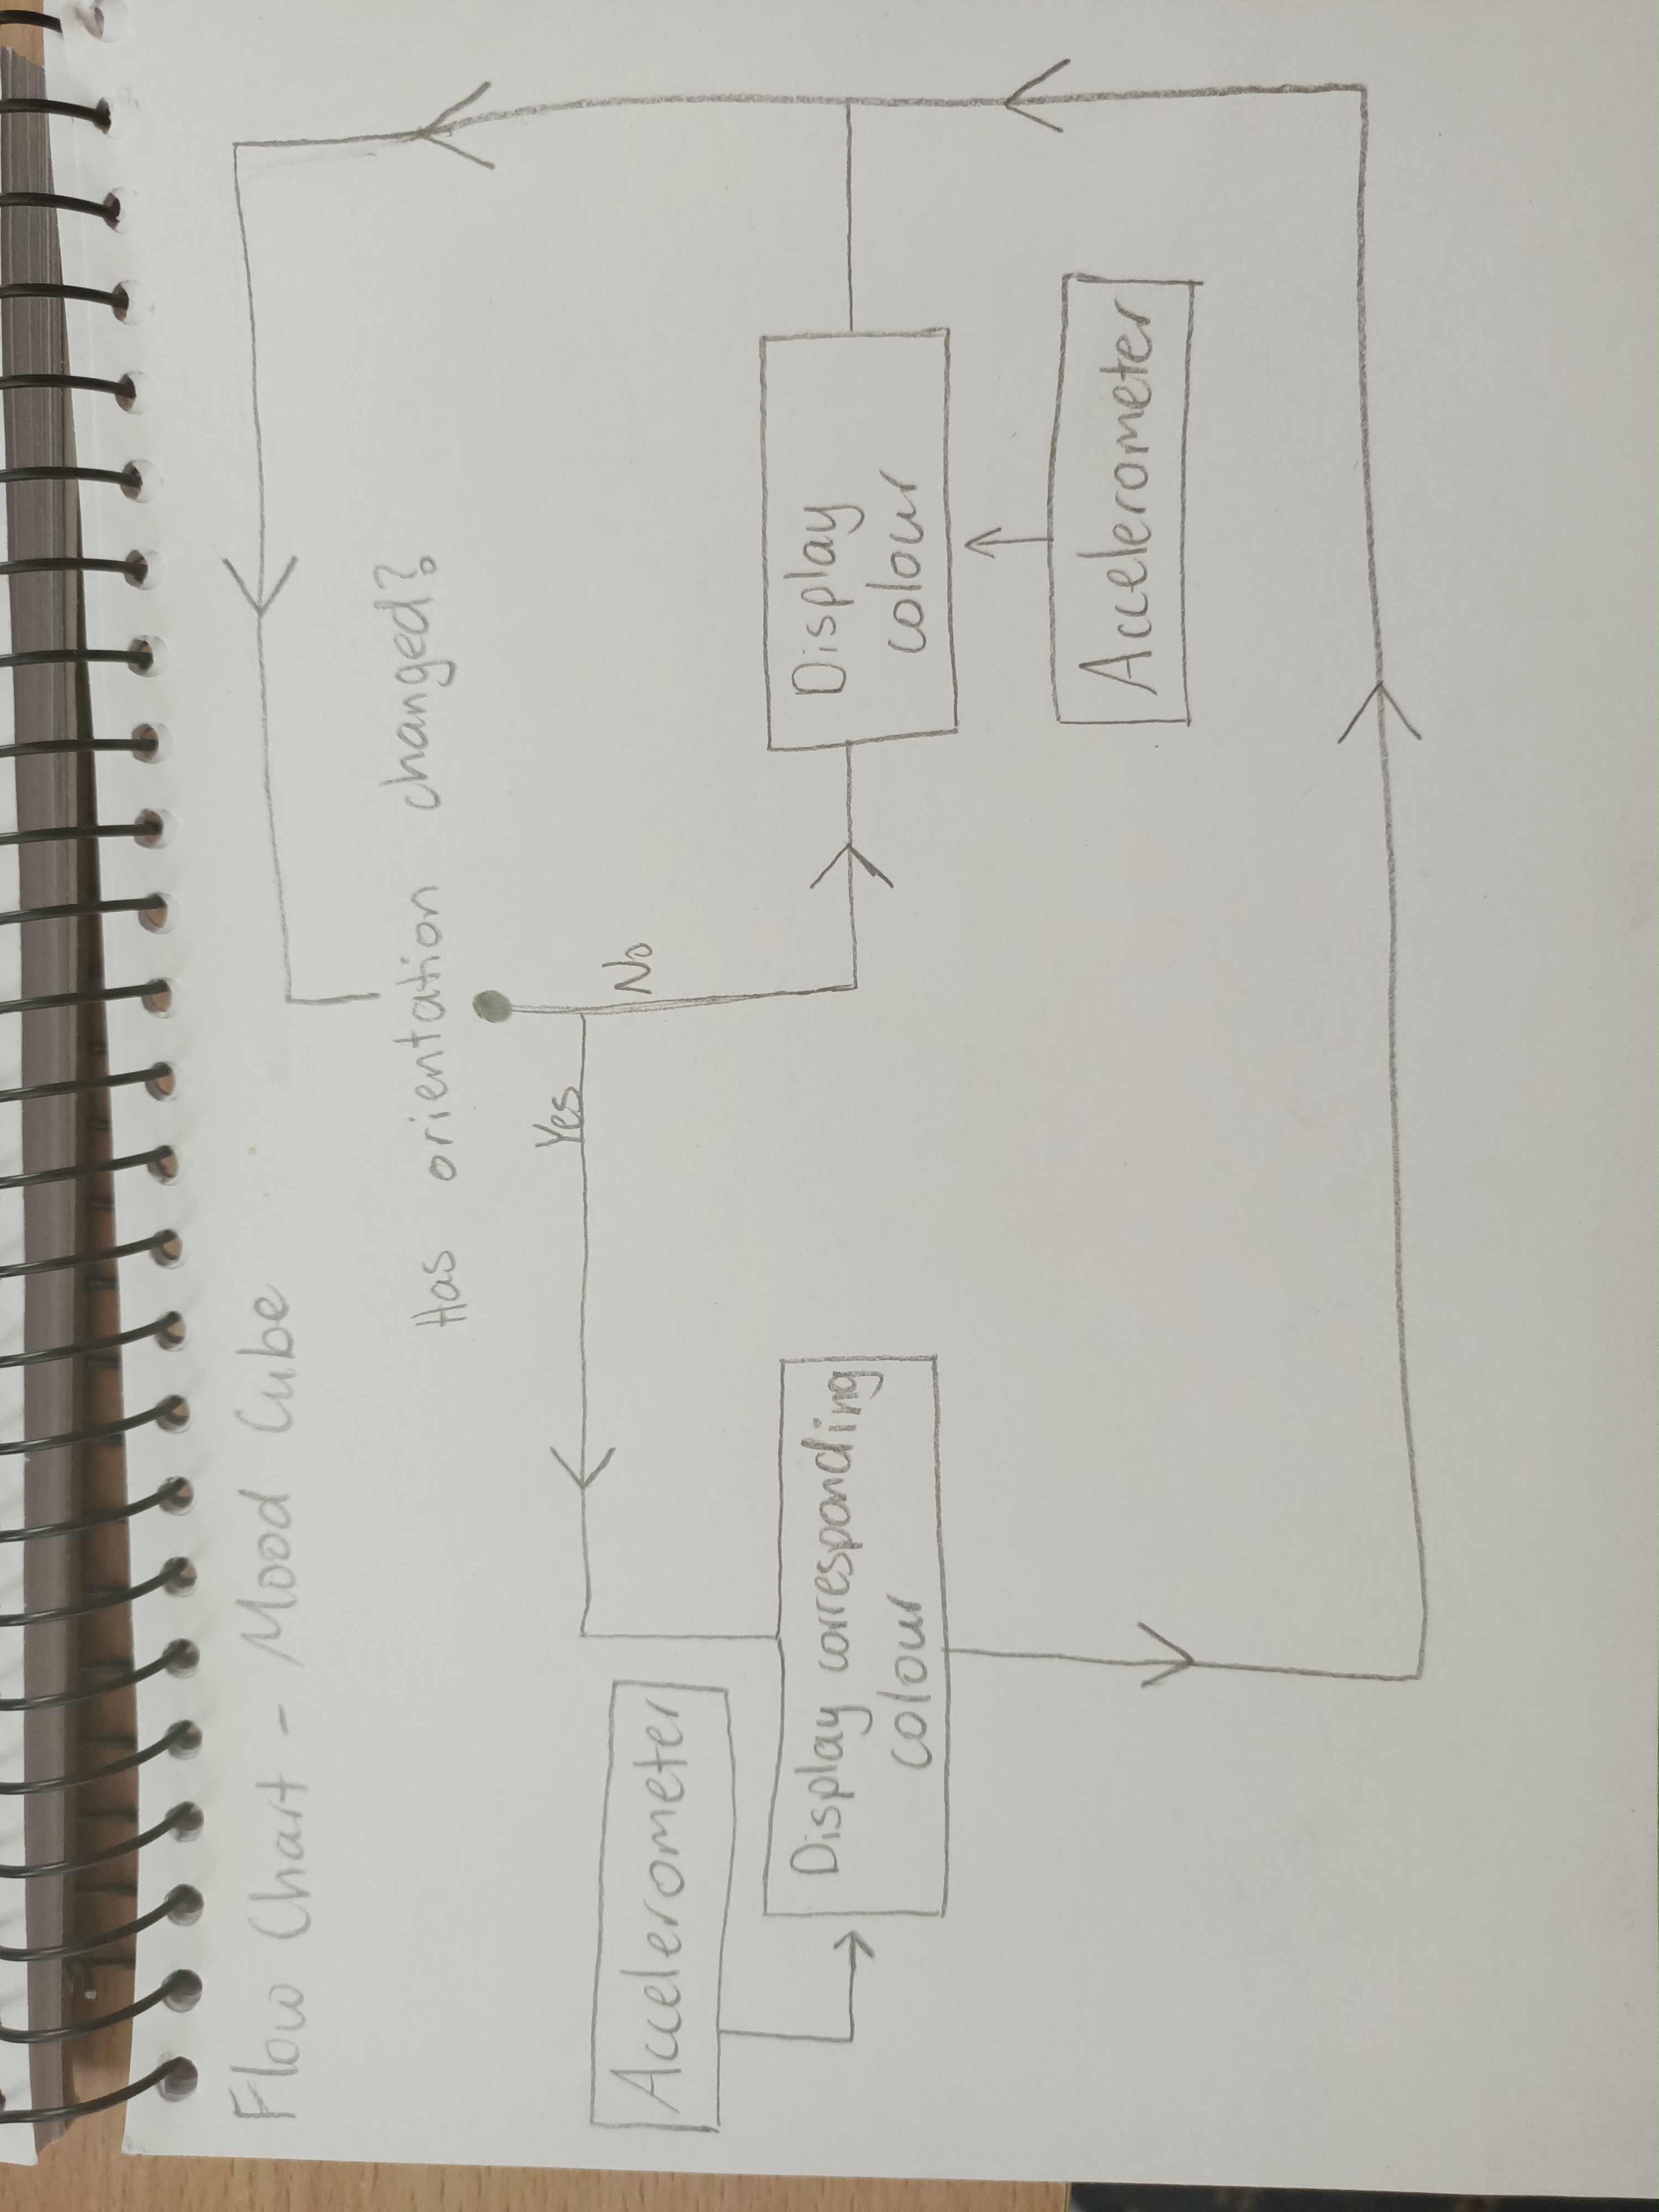 Flow Chart - Mood Cube
Has orientation changed?
Yes
No
Accelerometer
Display corresponding
colour
Display
colour
Accelerometer